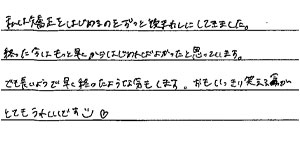 私は矯正をはじめるのをずっと後まわしにしてきました。
終った今はもっと早くからはじめればよかったと思っています。
でも長いようで早く終ったような気もします。おもいっきり笑える事が
とてもうれしいです ♡